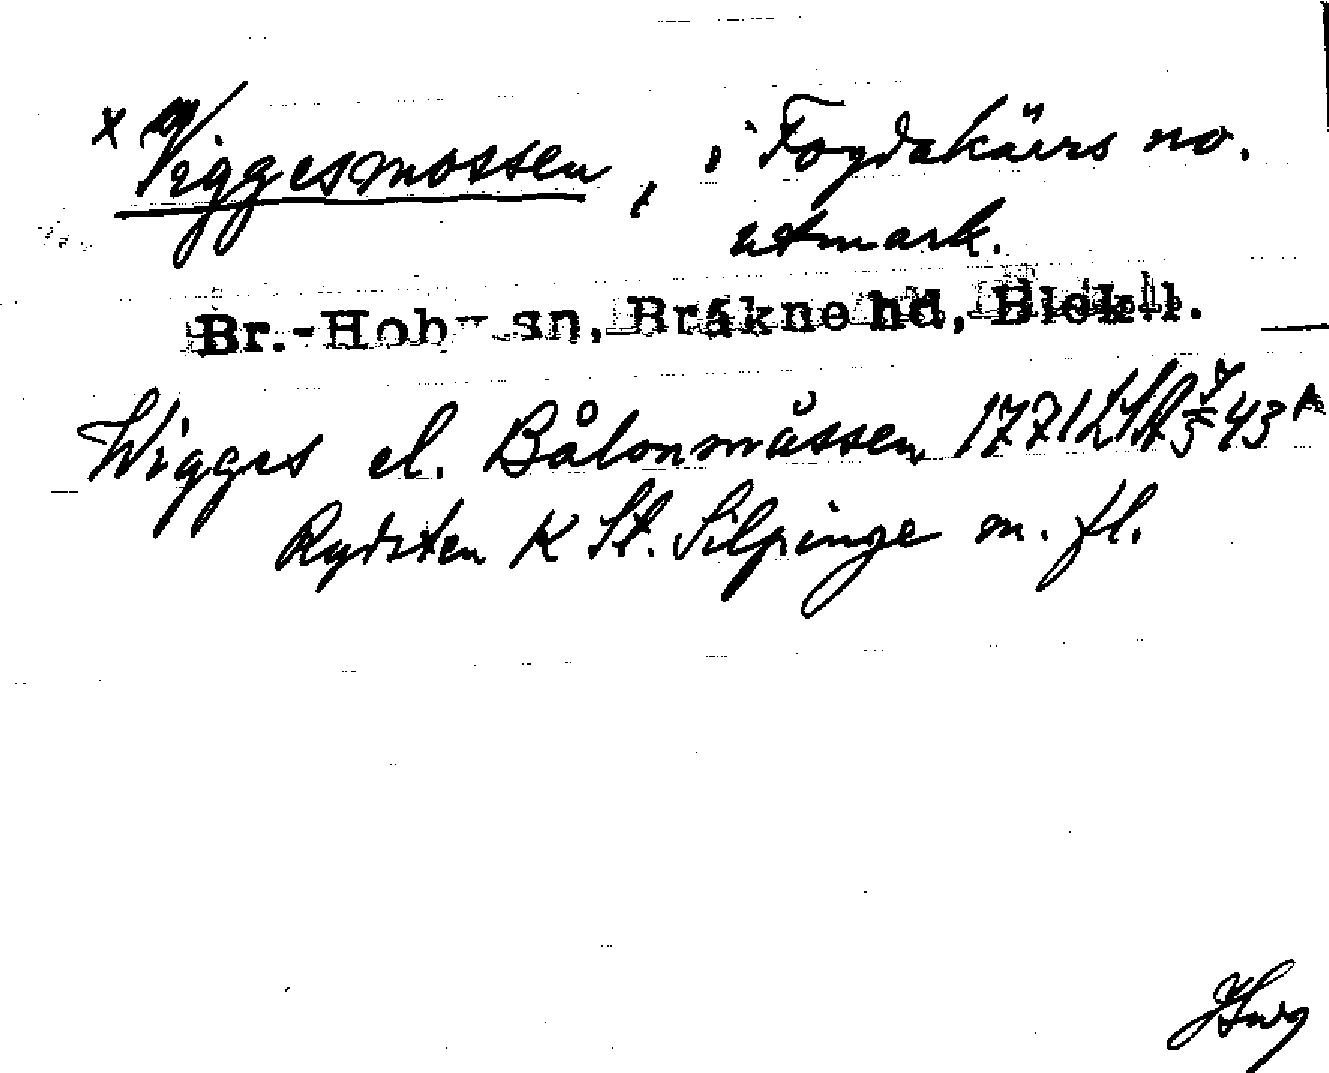 x Viggesmossen, i Fogdakärrs no.
utmark.
Br.-Hoby sn, Bräkne hd, Blek. l.
Wigges el. Bålonmåssen 1771 LSA 43
Rydsten K St. Silpinge m. fl.